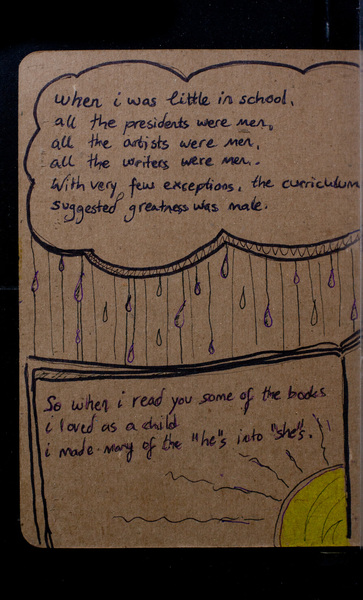 when i was little in school,
all the presidents were men,
all the artists were men,
all the writers were men.
With very few exceptions, the curriculum
suggested greatness was male.
So when i read you some of the books
i loved as a child
i made many of the "he"s into "she"s.